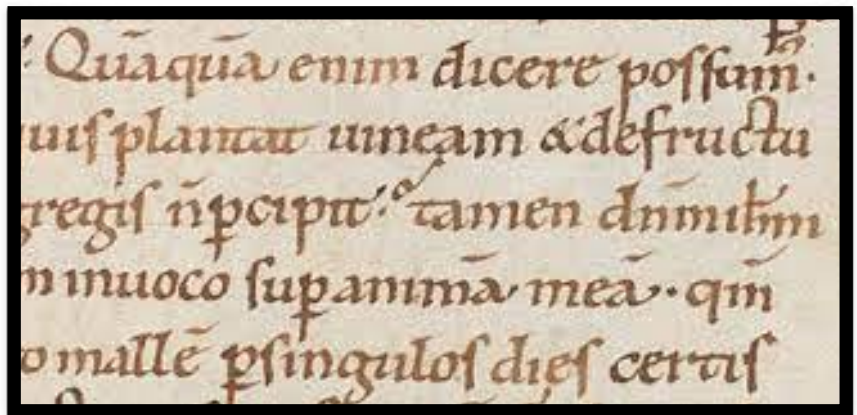 Quāquā enim dicere possum̄·
uis plantat uineam &defructu
gregis n̄ p̱cipit: tamen dn̄m ihm̄
n inuoco sup̱ animā meā· qm̄
o mallē p̱singulos dies certis